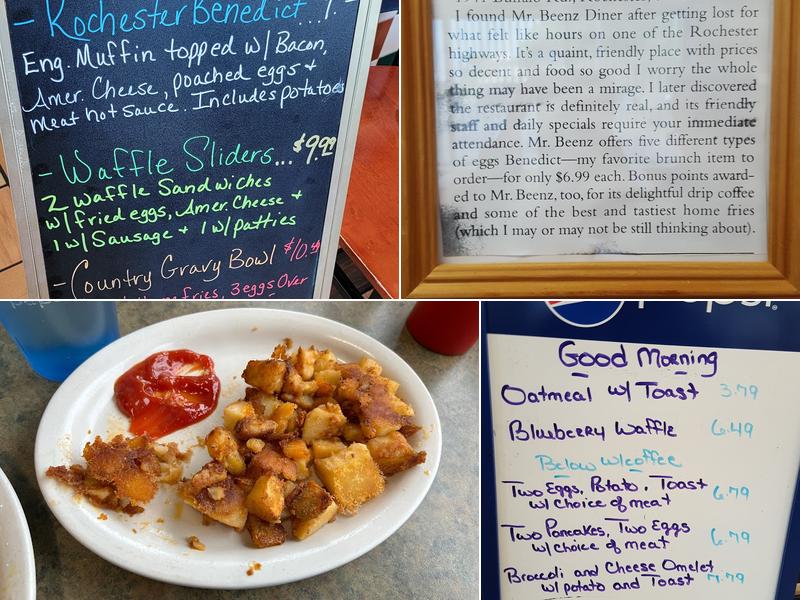 - Rochester Benedict...
Eng. Muffin topped w/ Bacon,
Amer. Cheese, poached eggs +
meat hot sauce. Includes potatoes
- Waffle Sliders... $9.99
2 Waffle Sandwiches
w/ fried eggs, Amer. Cheese +
1 w/ Sausage + 1 w/ patties
- Country Gravy Bowl $10.
fries, 3 eggs Over
I found Mr. Beenz Diner after getting lost for
what felt like hours on one of the Rochester
highways. It's a quaint, friendly place with prices
so decent and food so good I worry the whole
thing may have been a mirage. I later discovered
the restaurant is definitely real, and its friendly
staff and daily specials require your immediate
attendance. Mr. Beenz offers five different types
of eggs Benedict—my favorite brunch item to
order—for only $6.99 each. Bonus points award-
ed to Mr. Beenz, too, for its delightful drip coffee
and some of the best and tastiest home fries
(which I may or may not be still thinking about).
Good Morning
Oatmeal w/ Toast 3.79
Blueberry Waffle 6.49
Below w/coffee
Two Eggs, Potato, Toast
w/ choice of meat 6.79
Two Pancakes, Two Eggs
w/ choice of meat 6.79
Broccoli and Cheese Omelet
w/ potato and Toast 7.79